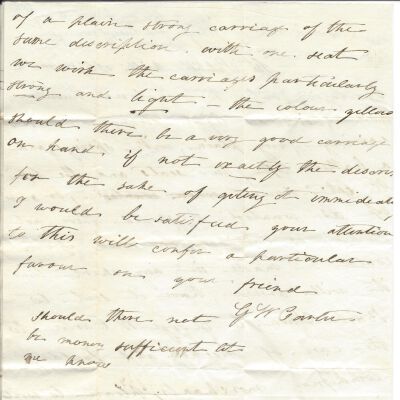 of a plain strong carriage of the
same description with one seat
we wish the carriages particularly
strong and light – the colour yellow
should there be a very good carriage
on hand if not exactly the descri
for the sake of geting it immideat
I would be satisfied your attention
to this will confer a particular
favour on your friend
G W
should there not
be money sufficient at
me know